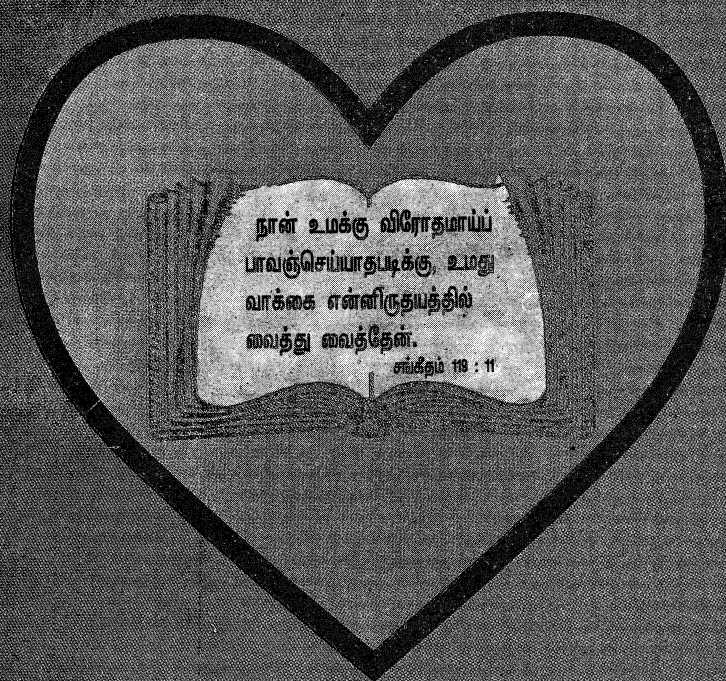 நான் உமக்கு விரோதமாய்ப்
பாவஞ்செய்யாதபடிக்கு, உமது
வாக்கை என்னிருதயத்தில்
வைத்து வைத்தேன்.
சங்கீதம் 119 : 11